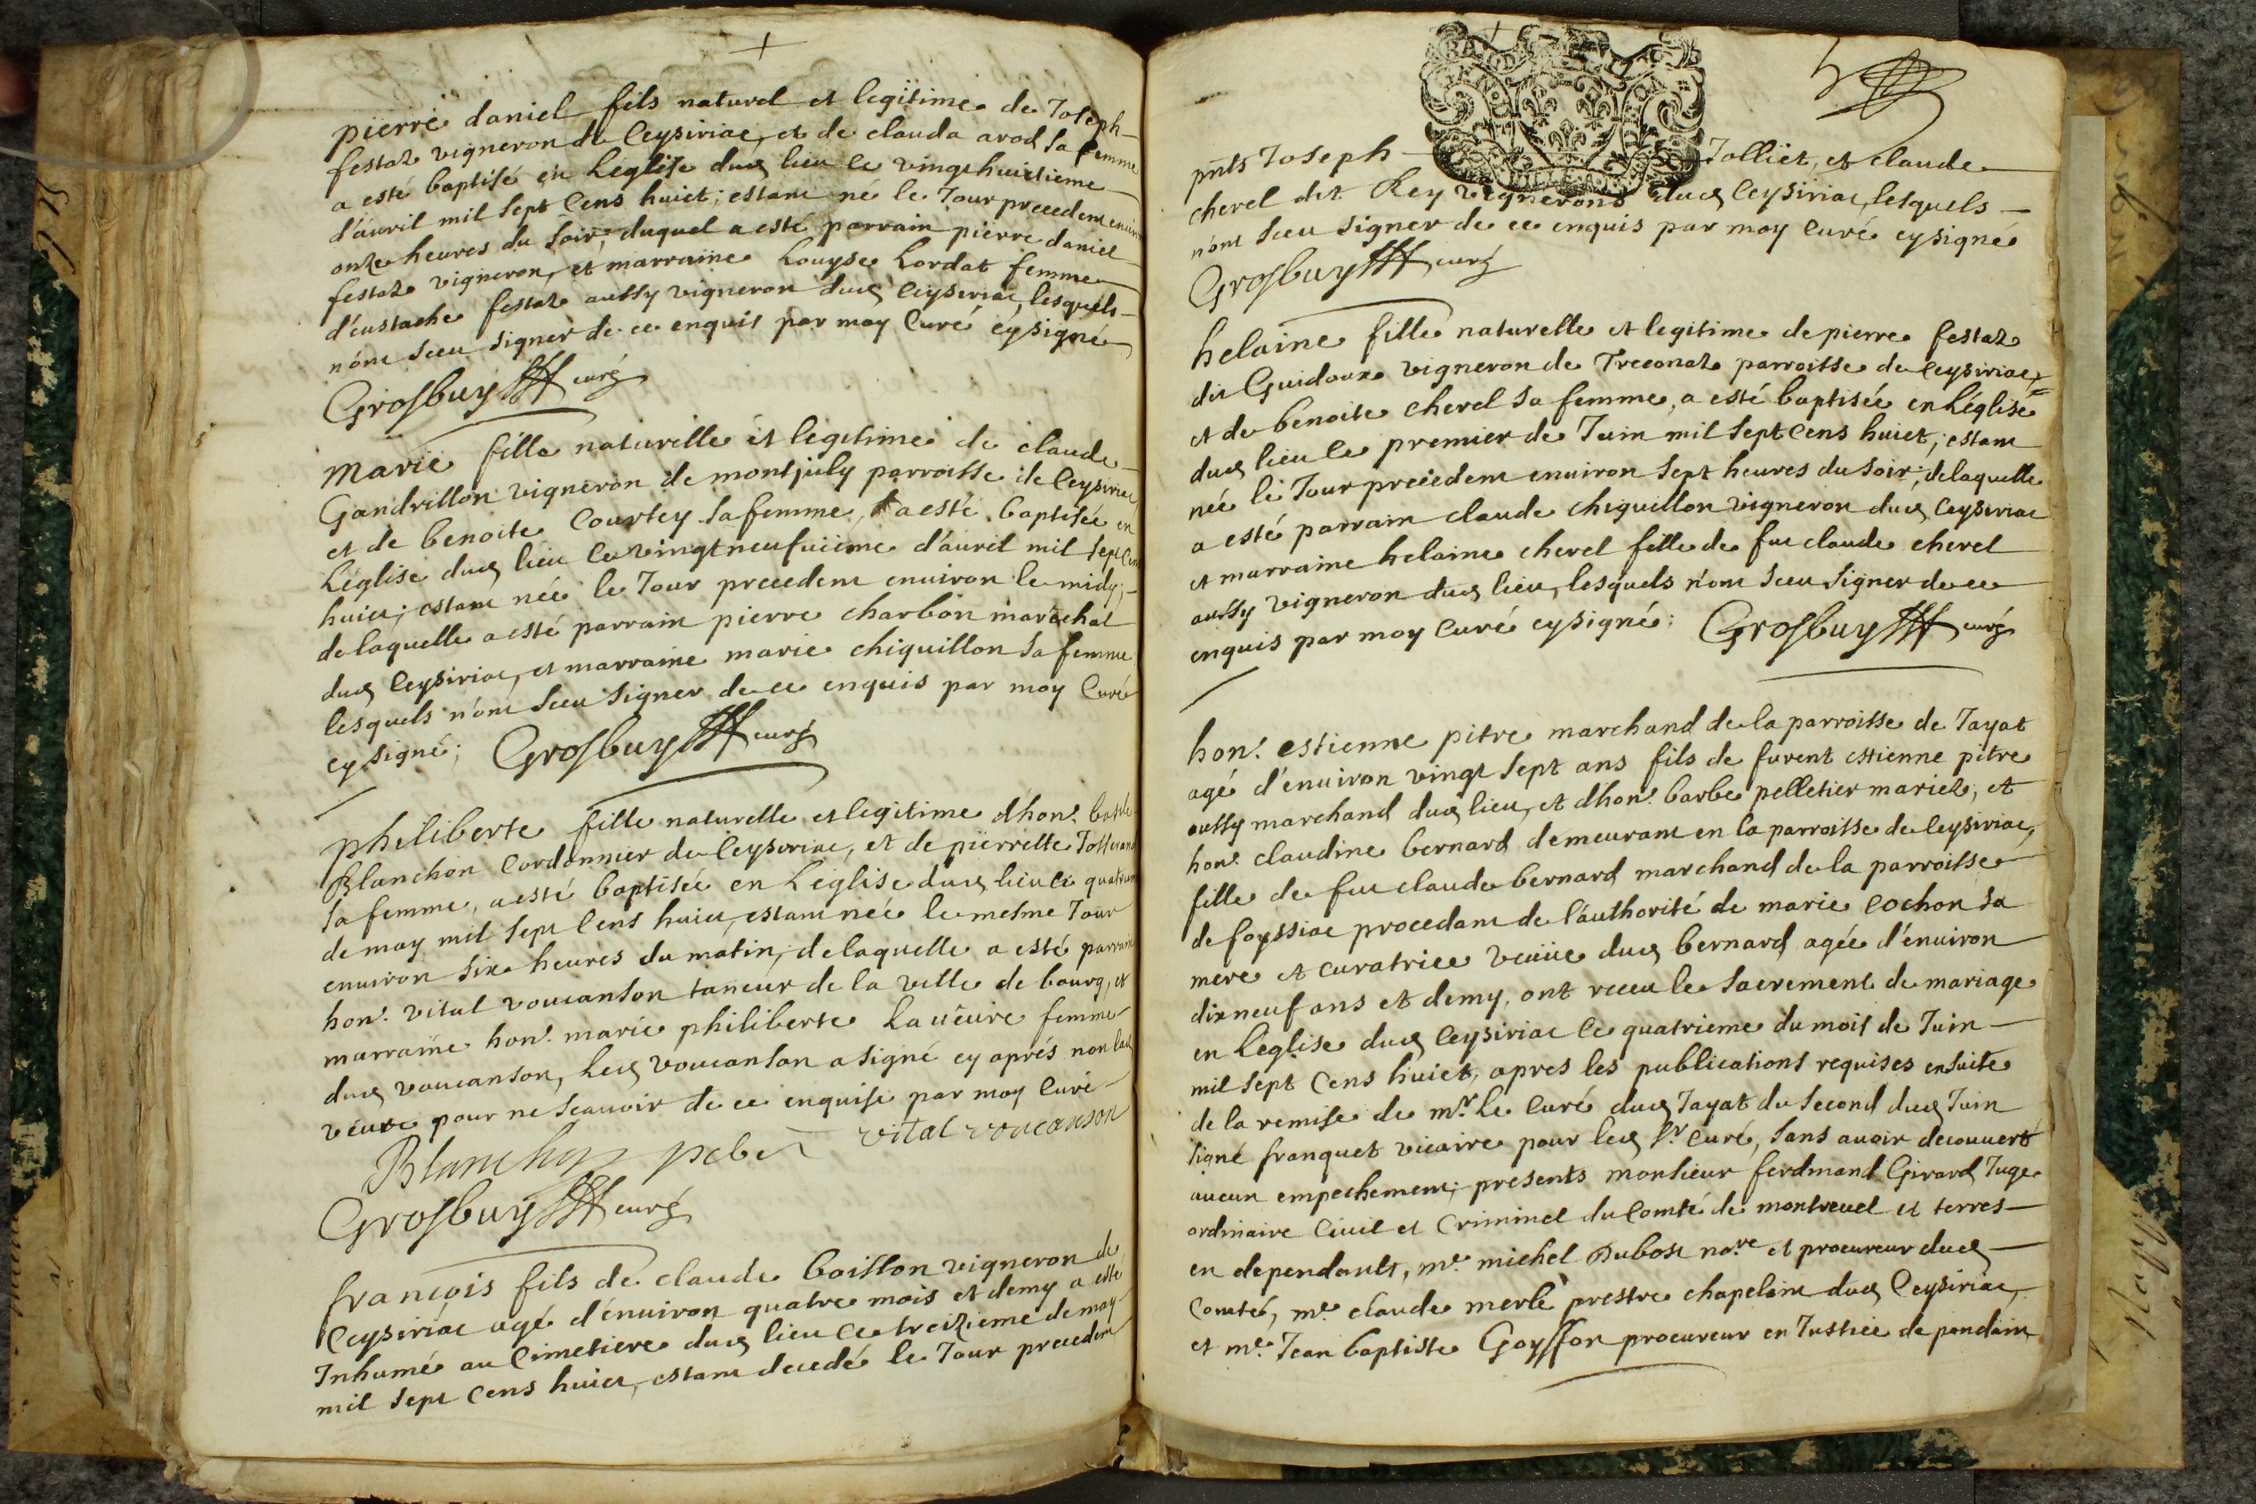 pierre daniel fils naturel et legitime de Joseph
festaz vigneron de Ceysiriac, et de clauda arod sa femme
a esté baptisé en Léglise dud lieu le vingt huictieme
d'auril mil sept Cens huict; estant né le Jour precedent enuiron
onze heures du soir; duquel a esté parrain pierre daniel
festaz vigneron, et marraine Louyse Lordat femme
d'eustache festaz aussy vigneron dud Ceysiriac, lesquels
n'ont sceu signer de ce enquis par moy Curé cysigné
Grosbuy curé
marie fille naturelle et legitime de claude
Gandrillon vigneron de montjuly parroisse de Ceysiriac,
et de benoite Courtey sa femme, a esté baptisée en
Léglise dud lieu le vingtneufuiéme d'auril mil sept Cens
huict; estant née le Jour precedent enuiron le midy;
de laquelle a esté parrain pierre charbon maréchal
dud Ceysiriac, et marraine marie chiquillon sa femme
lesquels n'ont sceu signer de ce enquis par moy Curé
cysigné; Grosbuy curé
philiberte fille naturelle et legitime dhon.
Blanchon Cordonnier de Ceysiriac, et de pierrette
sa femme, a esté baptisée en Léglise dud lieu le quatrieme
de may mil sept Cens huict, estant née le mesme Jour
enuiron six heures du matin, de laquelle a esté parrain
hon. vital voucanson taneur de la ville de bourg, et
marraine hon. marie philiberte La veuve femme
dud voucanson, Led voucanson a signé cy aprés non lad
veuve pour ne scauoir de ce enquise par moy Curé
Blanchon vital voucanson
Grosbuy curé
francois fils de claude boisson vigneron de
Ceysiriac agé d'enuiron quatre mois et demy a esté
Inhumé au Cimetiere dud lieu le treizieme de may
mil sept Cens huict, estant decedé le Jour precedent
5
pnts Joseph Jolliet, et claude
cherel dit Rey vignerons dud Ceysiriac, lesquels
n'ont sceu signer de ce enquis par moy curé cysigné
Grosbuy curé
helaine fille naturelle et legitime de pierre festaz
dit Guidoux vigneron de Treconaz parroisse de Ceysiriac,
et de benoite cherel sa femme, a esté baptisée en Léglise
dud lieu le premier de Juin mil sept Cens huict; estant
née le Jour precedent enuiron sept heures du soir; de laquelle
a esté parrain claude chiquillon vigneron dud Ceysiriac
et marraine helaine cherel fille de fut claude cherel
aussy vigneron dud lieu, lesquels n'ont sceu signer de ce
enquis par moy Curé cysigné; Grosbuy curé
hon. estienne pitre marchand de la parroisse de Jayat
agé d'enuiron vingt sept ans fils de furent estienne pitre
aussy marchand dud lieu, et dhon. barbe pelletier mariez, et
hon. claudine bernard demeurant en la parroisse de Ceysiriac,
fille de fut claude bernard marchand de la parroisse
de foyssiac procedant de l'authorité de marie cochon sa
mere et curatrice veuüe dud bernard agée d'enuiron
dixneuf ans et demy, ont receu le sacrement de mariage
en Leglise dud Ceysiriac le quatrieme du mois de Juin
mil sept Cens huict, apres les publications requises ensuite
de la remise de mr. Le Curé dud Jayat du second dud Juin
signé franquet vicaire pour led sr. Curé, sans auoir decouuert
aucun empechement; presents monsieur ferdinand Girard Juge
ordinaire Ciuil et Criminel du Comté de montreuel et terres
en dependants, me. michel Dubost nore et procureur dud
Comté, me. claude merle prestre chapelain dud Ceysiriac,
et me. Jean baptiste Goyffon procureur en Justice de pondain